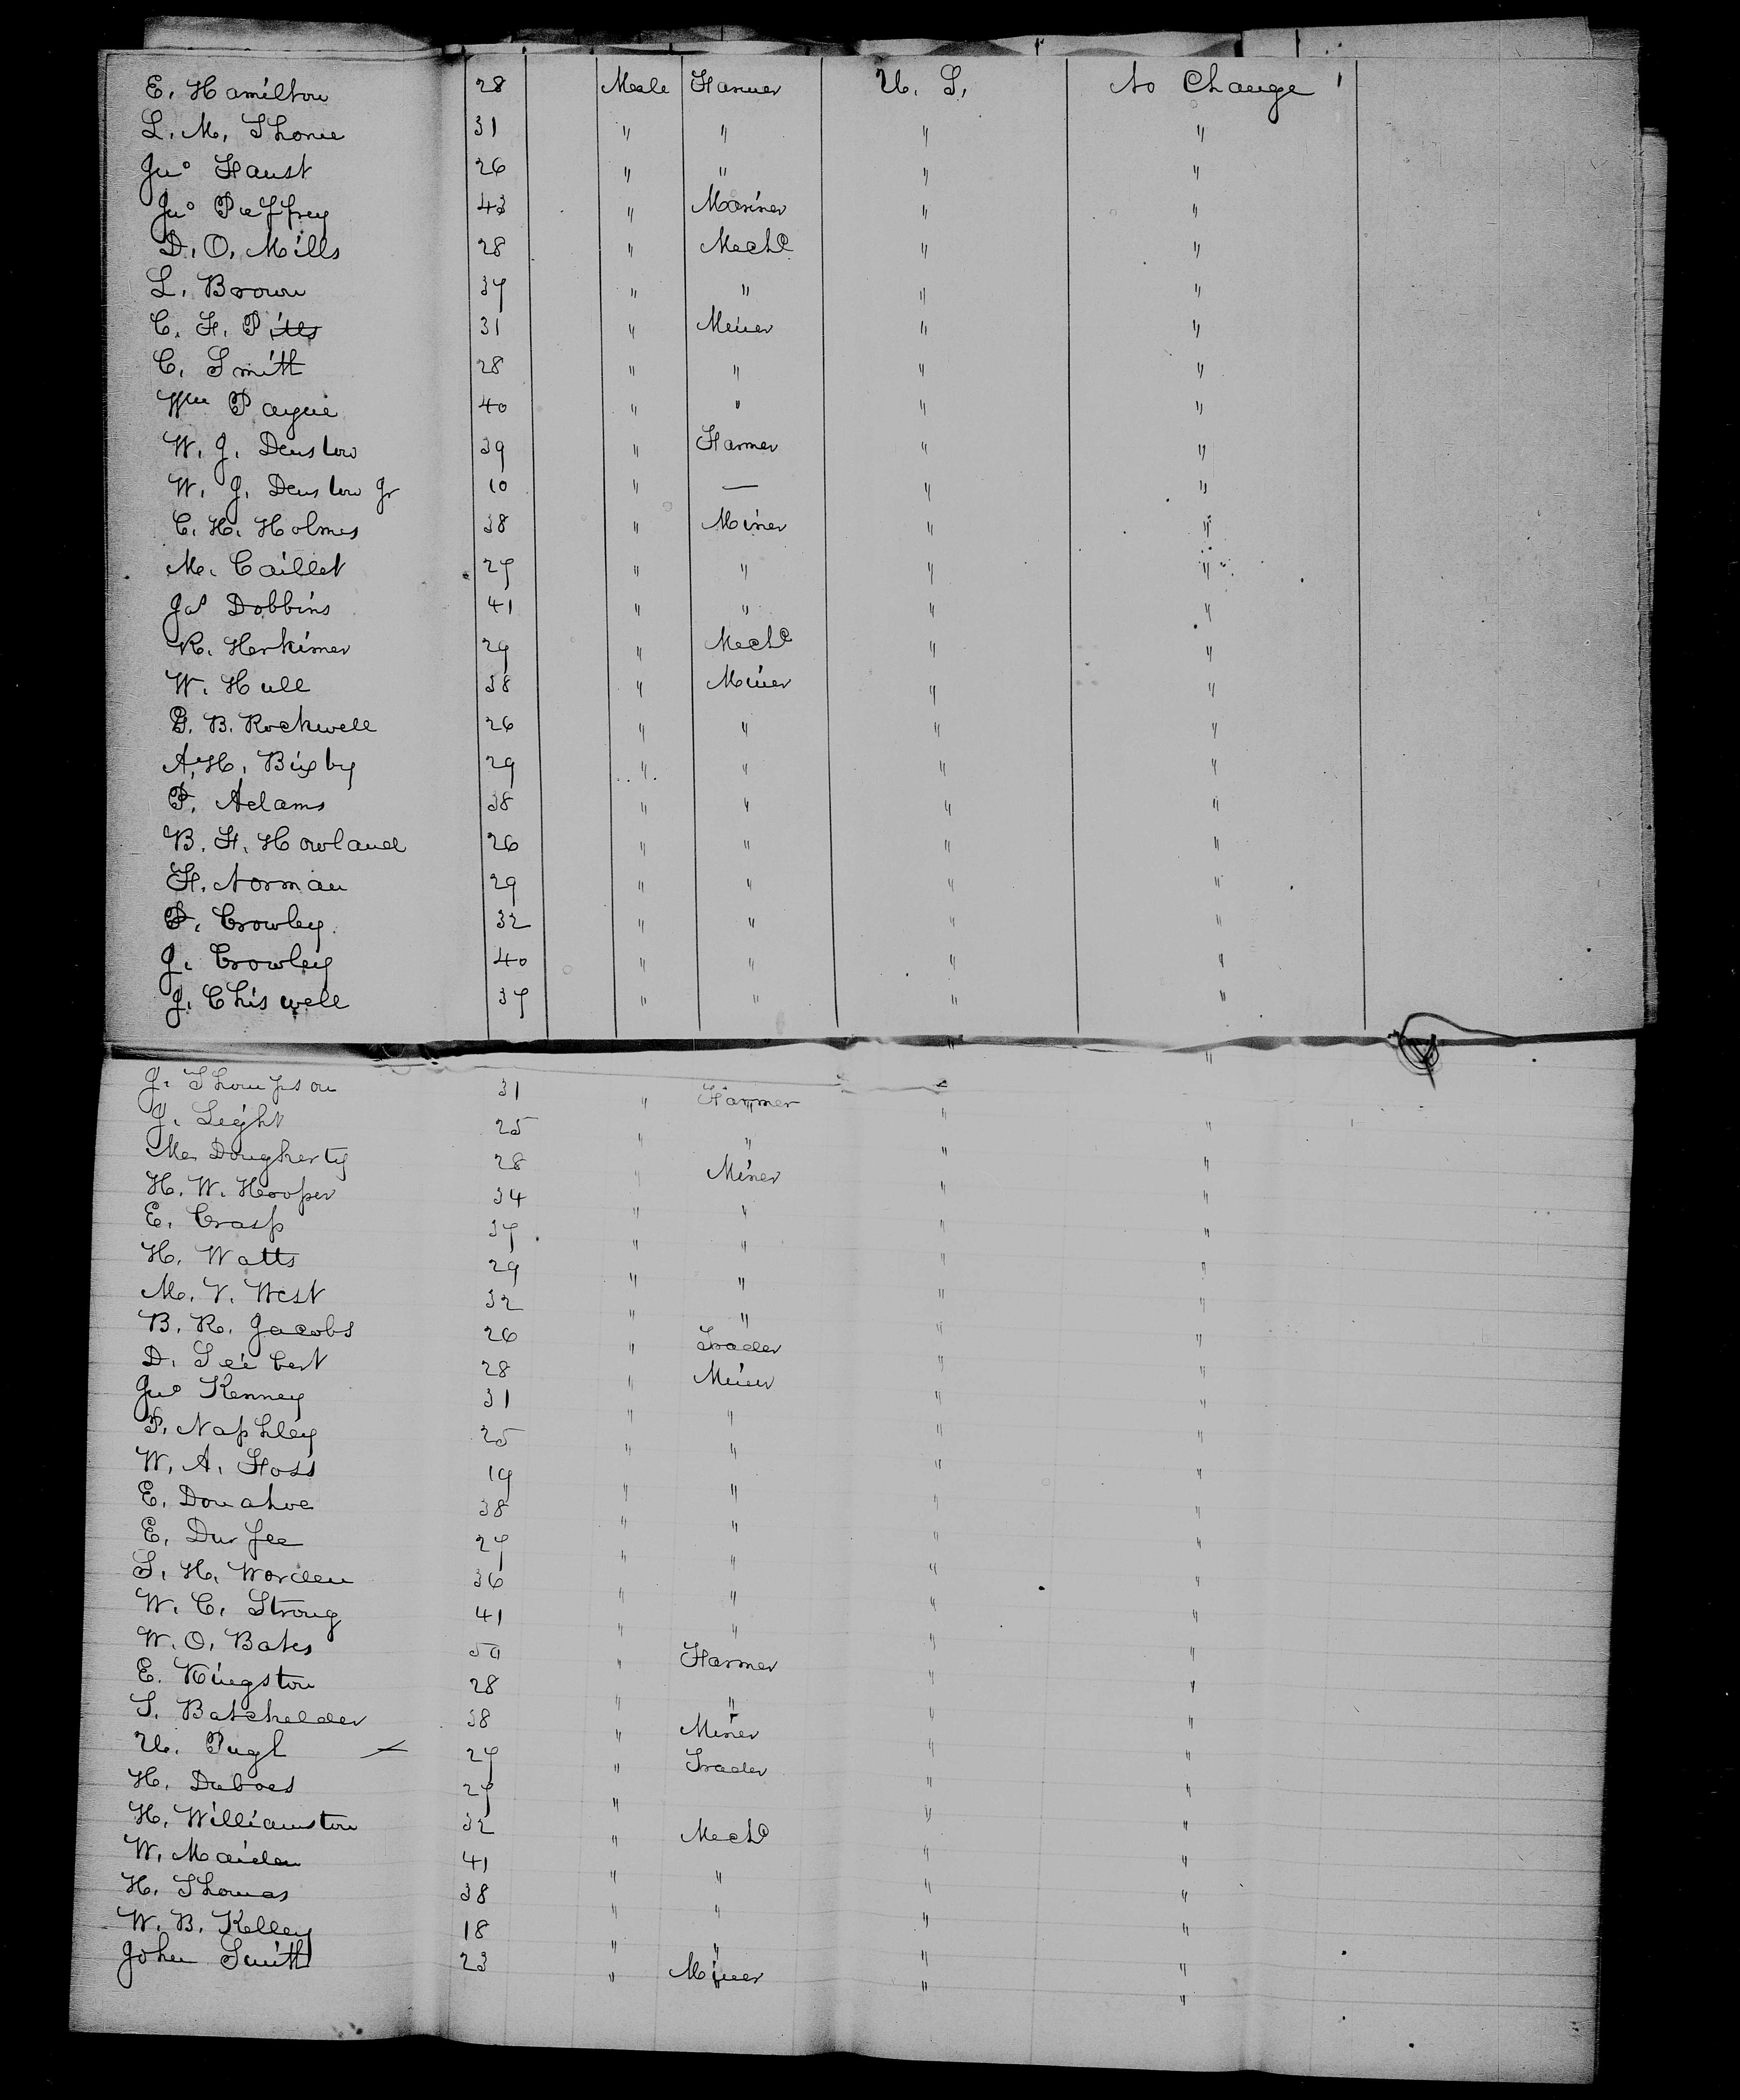 E. Hamilton 28 Male Farmer U. S. No Change
L. M. Thorne 31 " " " "
Jno Faust 26 " " " "
Jno Pieffrey 43 " Mariner " "
D. O. Mills 28 " Mechc " "
L. Brown 37 " " " "
C. F. Pitts 31 " Miner " "
C. Smith 28 " " " "
Wm Payne 40 " " " "
W. J. Denslow 39 " Farmer " "
W. J. Denslow Jr 10 " — " "
C. H. Holmes 38 " Miner " "
M. Caillet 27 " " " "
Jas Dobbins 41 " " " "
R. Herkimer 29 " Mechc " "
W. Hull 38 " Miner " "
G. B. Rockwell 26 " " " "
A. H. Bixby 29 " " " "
P. Adams 38 " " " "
B. F. Howland 26 " " " "
F. Norman 29 " " " "
P. Crowley 32 " " " "
J. Crowley 40 " " " "
J. Chiswell 37 " " " "
J. Thompson 31 " Farmer " "
J. Leight 25 " " " "
M. Dougherty 28 " Miner " "
H. W. Hooper 34 " " " "
E. Crasp 37 " " " "
H. Watts 29 " " " "
M. V. West 32 " " " "
B. R. Jacobs 26 " Trader " "
D. Seibert 28 " Miner " "
Jno Kenney 31 " " " "
P. Naphley 25 " " " "
W. A. Foss 19 " " " "
E. Donahoe 38 " " " "
E. Durfee 27 " " " "
S. H. Worden 36 " " " "
W. C. Strong 41 " " " "
W. O. Bates 50 " Farmer " "
E. Kingston 28 " " " "
S. Batchelder 38 " Miner " "
U. Pugh 27 " Trader " "
H. Dubois 27 " " "
H. Williamston 32 " Mechc " "
W. Maiden 41 " " " "
H. Thomas 38 " " " "
W. B. Kelley 18 " " " "
John Smith 23 " Miner " "